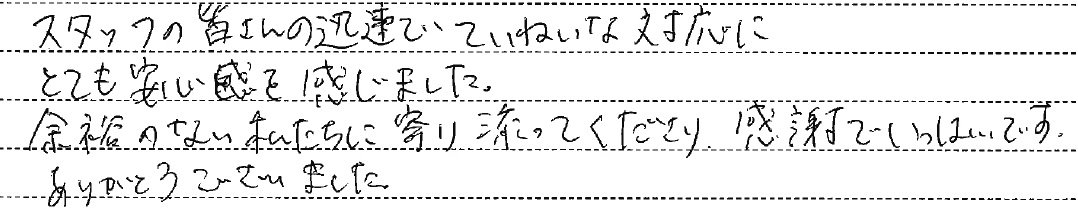 スタッフの皆さんの迅速でていねいな対応に
とても安心感を感じました。
余裕のない私たちに寄り添ってくださり、感謝でいっぱいです。
ありがとうございました。